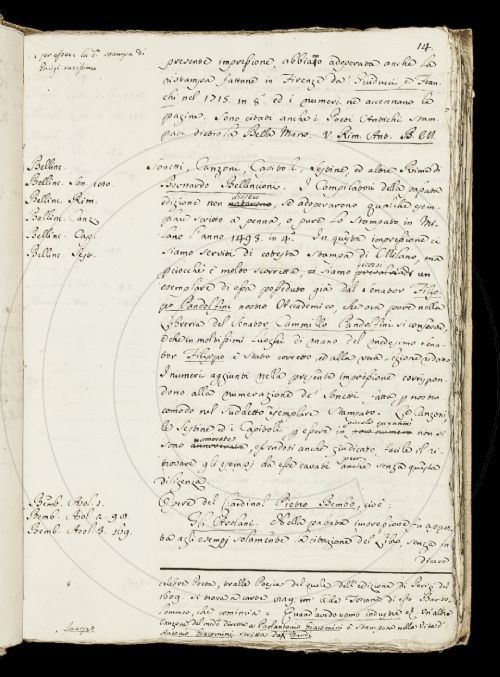 14.
per essere la d.ª stampa di
Parigi rarissima
presente impressione, abbiamo adoperata anche la
ristampa fattane in Firenze da Tartini e Fran-
chi nel 1715. in 8.º ed i numeri ne accennano le
pagine. Sono citati anche i Poeti Antichi stam-
pati dietro la Bella Mano. V. Rim. Ant. B. M.
Bellinc.
Bellinc. Son. 100.
Bellinc. Rim.
Bellinc. Canz.
Bellinc. Cap.
Bellinc. Sest.
Sonetti, Canzoni, Capitoli, Sestine, ed altre Rime di
Bernardo Bellincioni. I Compilatori della passata
edizione non dissero se adoperavano qualche esem-
plare scritto a penna, o pure lo stampato in Mi-
lano l'anno 1493. in 4. In questa impressione ci
siamo serviti di cotesta stampa di Milano, ma
perciocchè è molto scorretta, ci siamo un
esemplare di essa posseduto già dal Senator Filip-
po Pandolfini nostro Accademico, che ora pure nella
Libreria del Senator Cammillo Pandolfini si conserva,
e che in moltissimi luoghi di mano del medesimo Sena-
tor Filippo è stato corretto, ed alla vera lezione ridotto.
I numeri aggiunti nella presente impressione corrispon-
dono alla numerazione de' Sonetti fatta per nostro
comodo nel suddetto esemplare stampato. Le Canzoni
le Sestine ed i Capitoli per essere in piccola quantità non si
sono numerate, essendosi anche giudicato facile il ri-
trovare gli esempj da esse cavati anche senza questa
diligenza.
Bemb. Asol. 1.
Bemb. Asol. 2. 98.
Bemb. Asol. 3. 169.
Opere del Cardinal Pietro Bembo, cioè:
Gli Asolani. Nella passata impressione fu appos-
ta agli esempj solamente la citazione del Libro, senza in-
dicare
celebre Poeta, tralle Poesie del quale dell'edizione di Parigi del
1609. si trova a carte
che comincia = Quand'avido uomo industre &c. Un'altra
Canzone del med.º diretta a Pierantonio Giacomini è stampata nella Vita d'
Antonio Giacomini scritta dal Nardi.